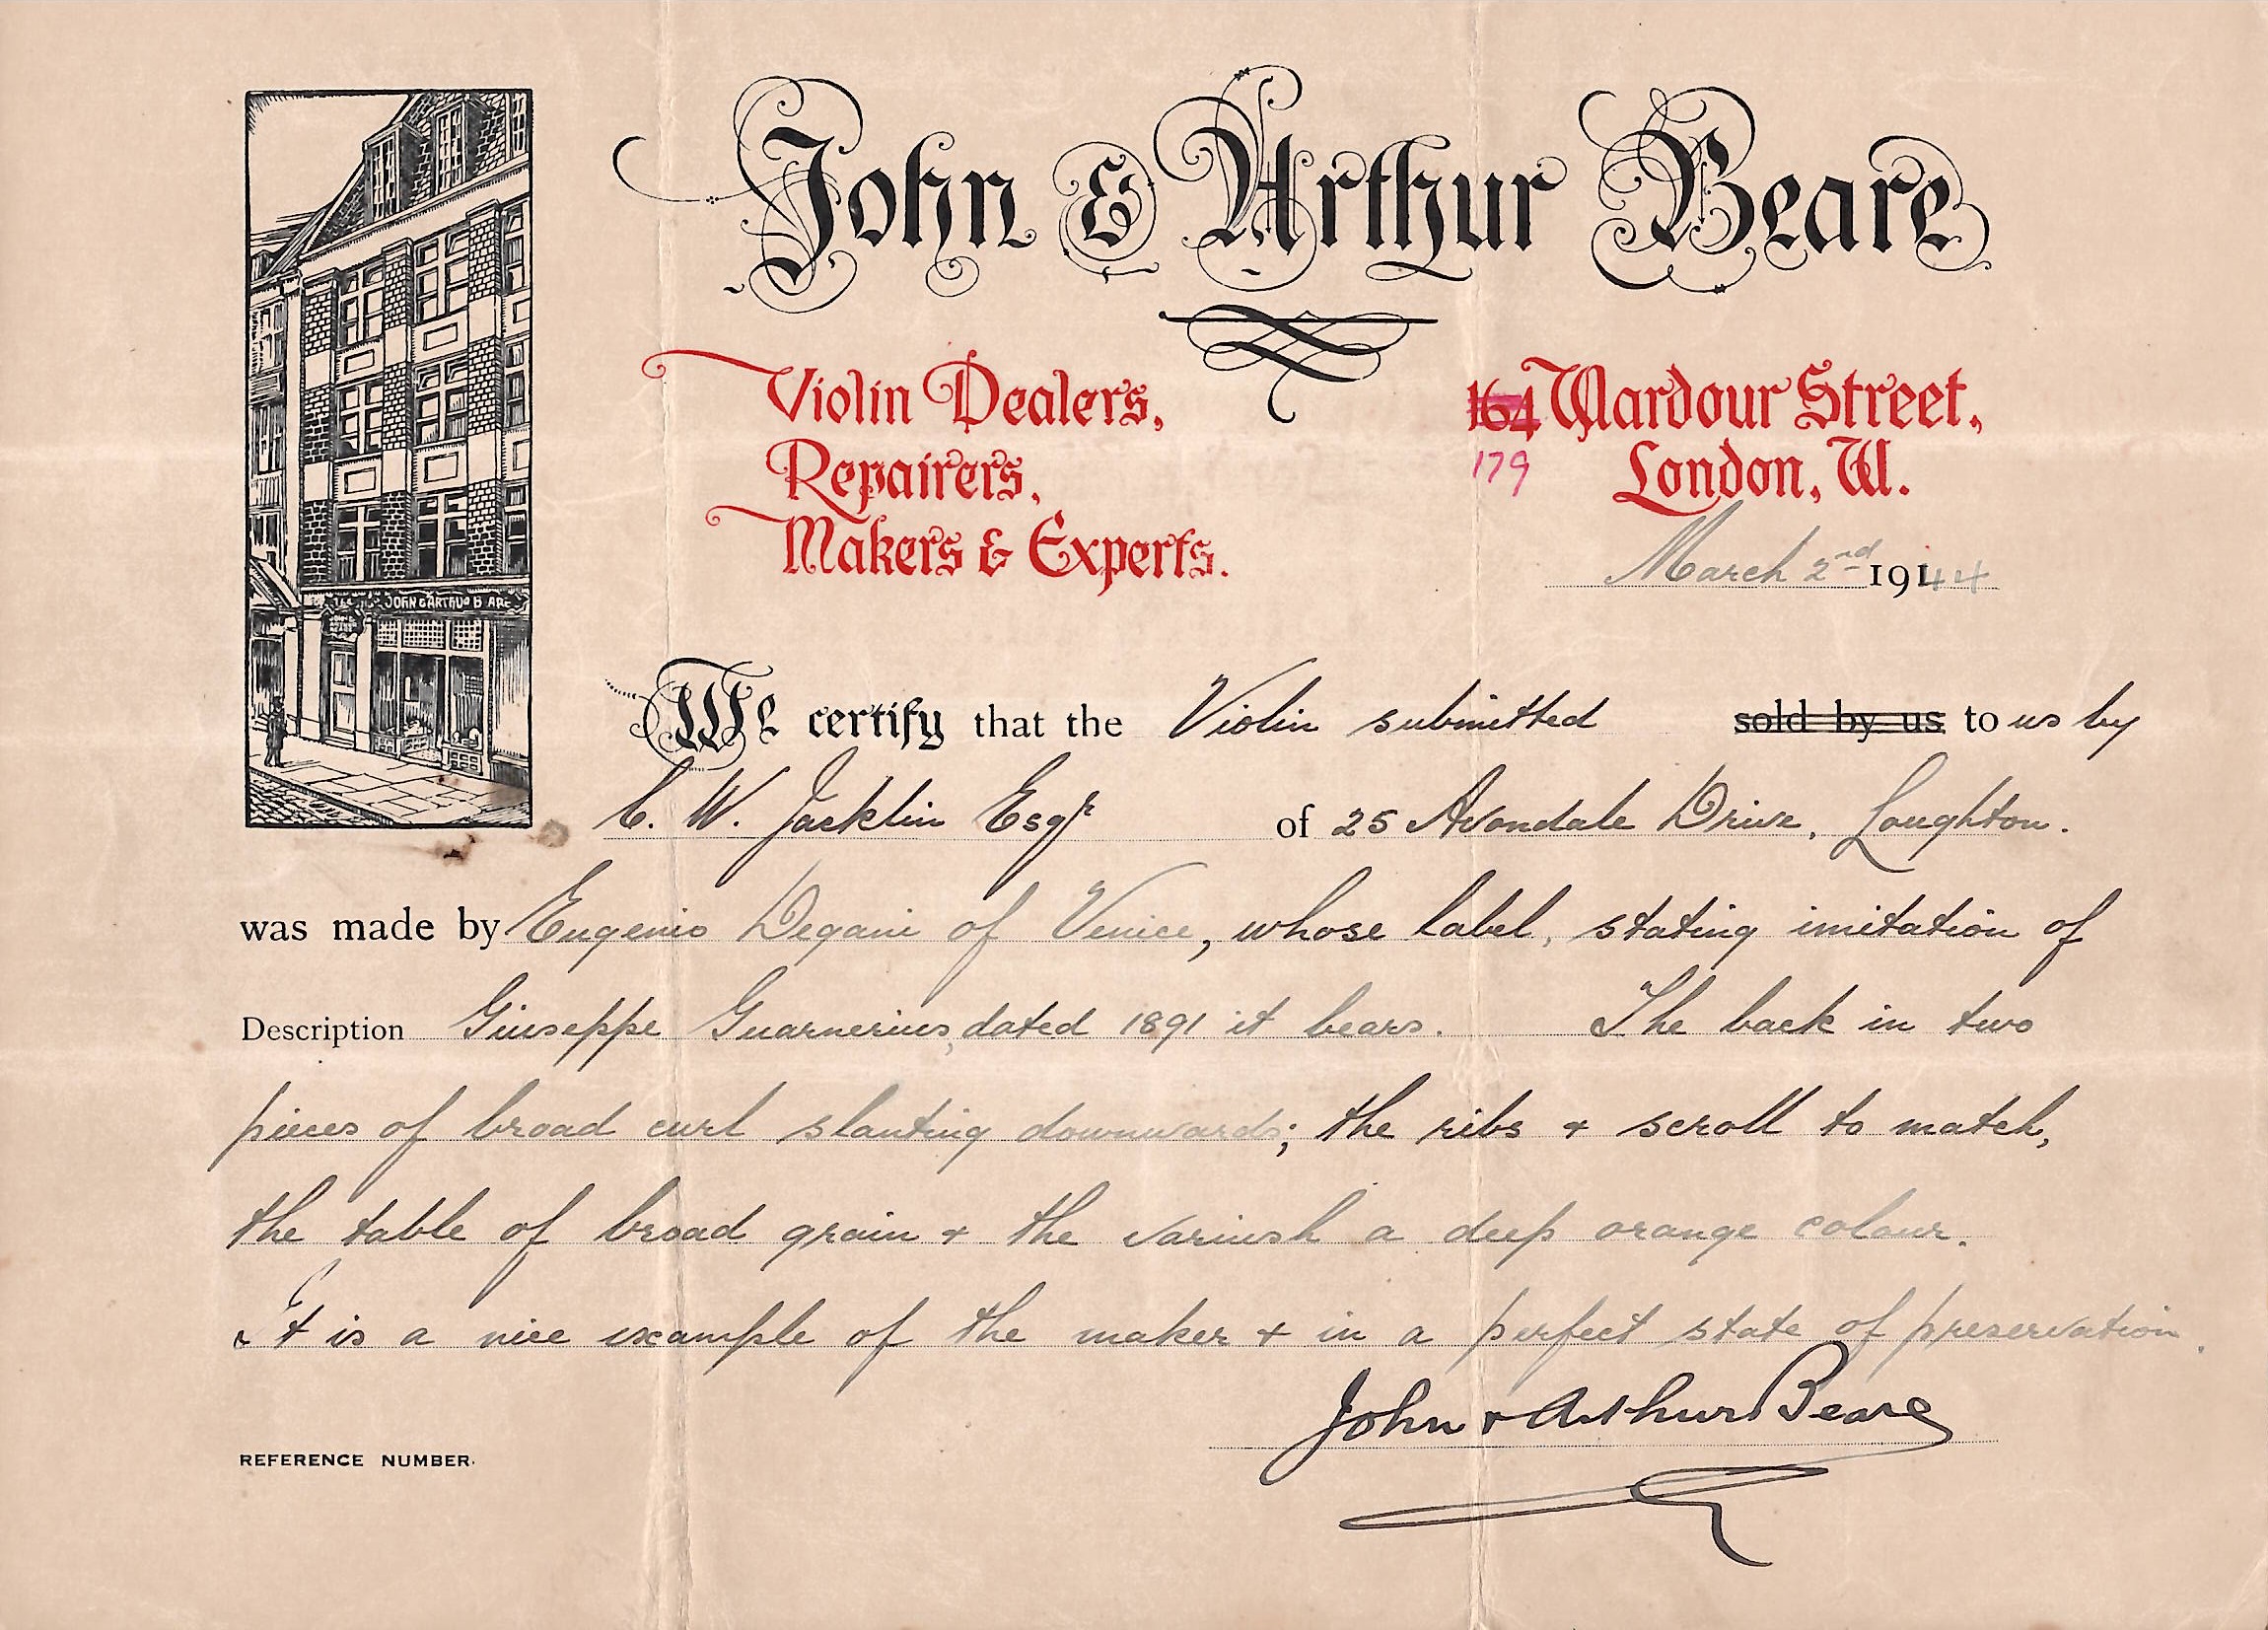 John & Arthur Beare
Violin Dealers,
Repairers,
Makers & Experts.
164 Wardour Street,
179
London, W.
March 2nd 1944
JOHN & ARTHUR BEARE
We certify that the Violin submitted sold by us to us by
C. W. Jacklin Esqr of 25 Avondale Drive, Loughton.
was made by Eugenio Degani of Venice, whose label, stating imitation of
Description Giuseppe Guarnerius, dated 1891 it bears. The back in two
pieces of broad curl slanting downwards; the ribs + scroll to match,
the table of broad grain + the varnish a deep orange colour.
It is a nice example of the maker + in a perfect state of preservation.
John + Arthur Beare
REFERENCE NUMBER.